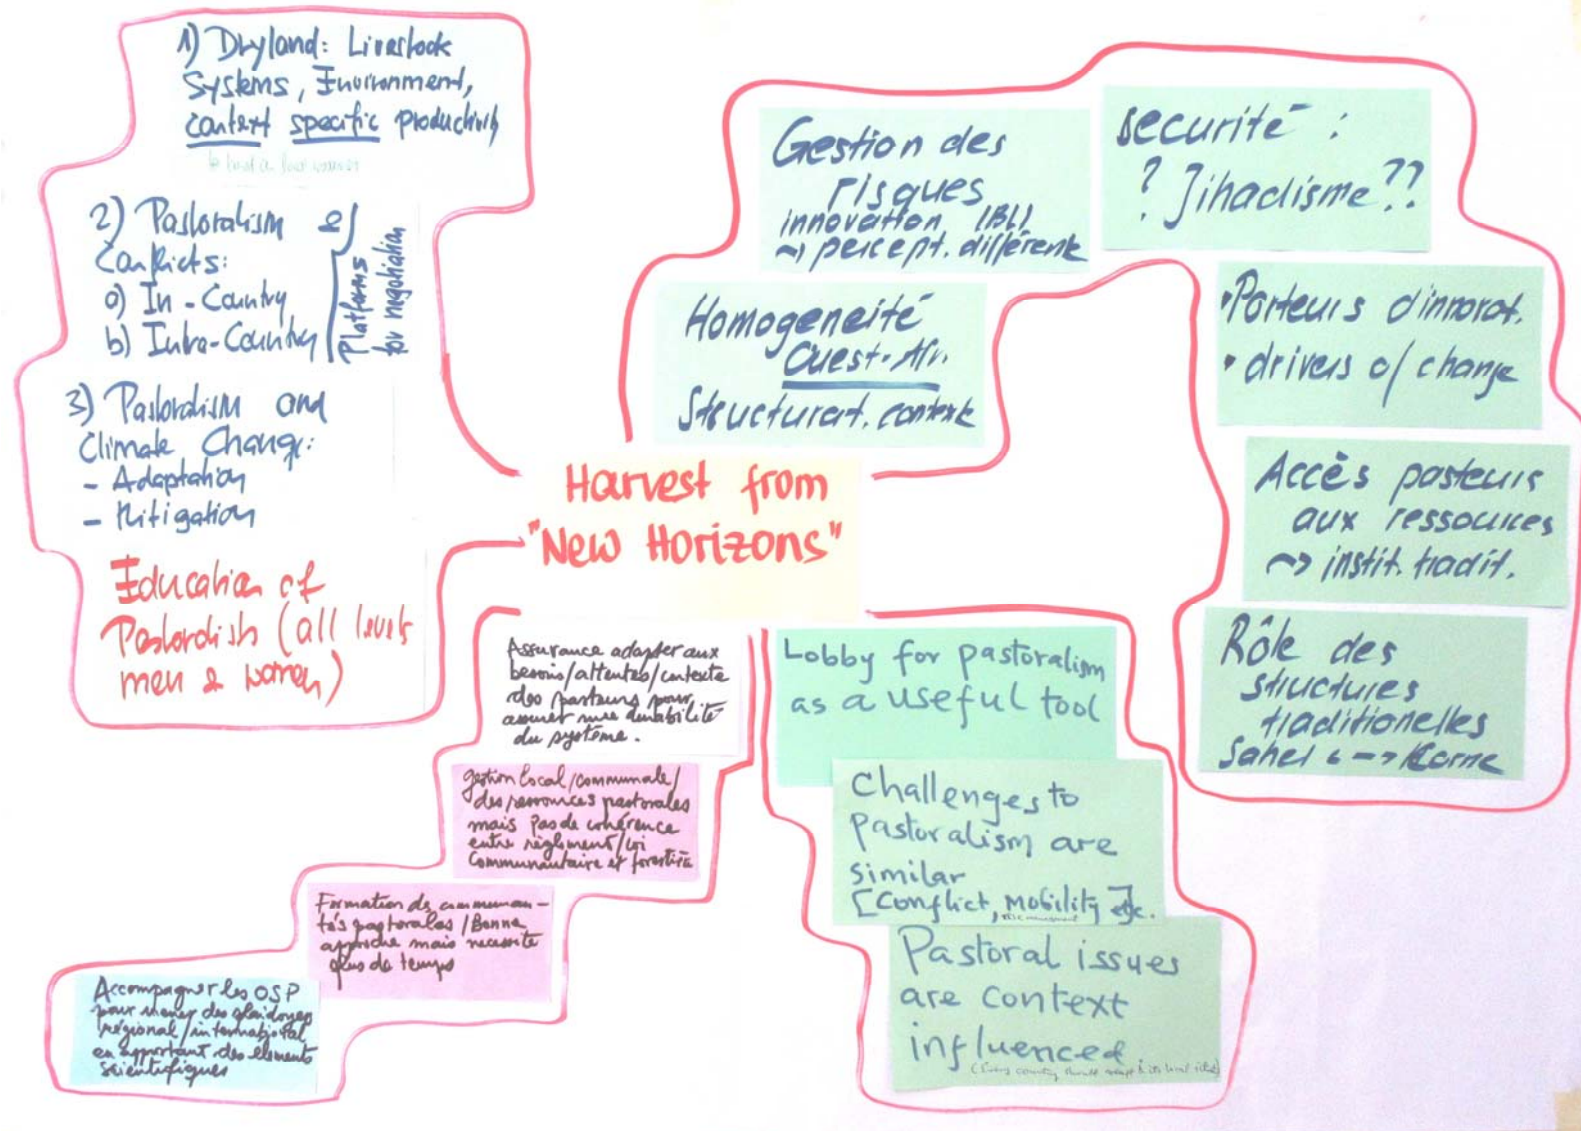 1) Dryland: Livestock
Systems, Environment,
context specific productivity
2) Pastoralism &
Conflicts:
a) In-Country
b) Intra-Country
Platforms
for negotiation
3) Pastoralism and
Climate Change:
- Adaptation
- Mitigation
Education of
Pastoralists (all levels
men & women)
Harvest from
"New Horizons"
Gestion des
risques
innovation IBLI
~> percept. différente
securité :
? Jihadisme ??
Homogeneité
Ouest-Afr.
Structurat. contexte
• Porteurs d'innovat.
• drivers of change
Accès pasteurs
aux ressources
~> instit. tradit.
Rôle des
structures
traditionelles
Sahel <--> Corne
Assurance adapter aux
besoins/attentes/contexte
des pasteurs pour
assurer une durabilité
du système.
gestion local/communale/
des ressources pastorales
mais pas de cohérence
entre règlement/loi
communautaire et forestière
Formation des communau-
tés pastorales / Bonne
approche mais necessite
plus de temps
Accompagner les OSP
pour mener des plaidoyer
régional/international
en apportant des elements
scientifiques
Lobby for pastoralism
as a useful tool
Challenges to
pastoralism are
similar
[Conflict, Mobility] etc.
Pastoral issues
are context
influenced